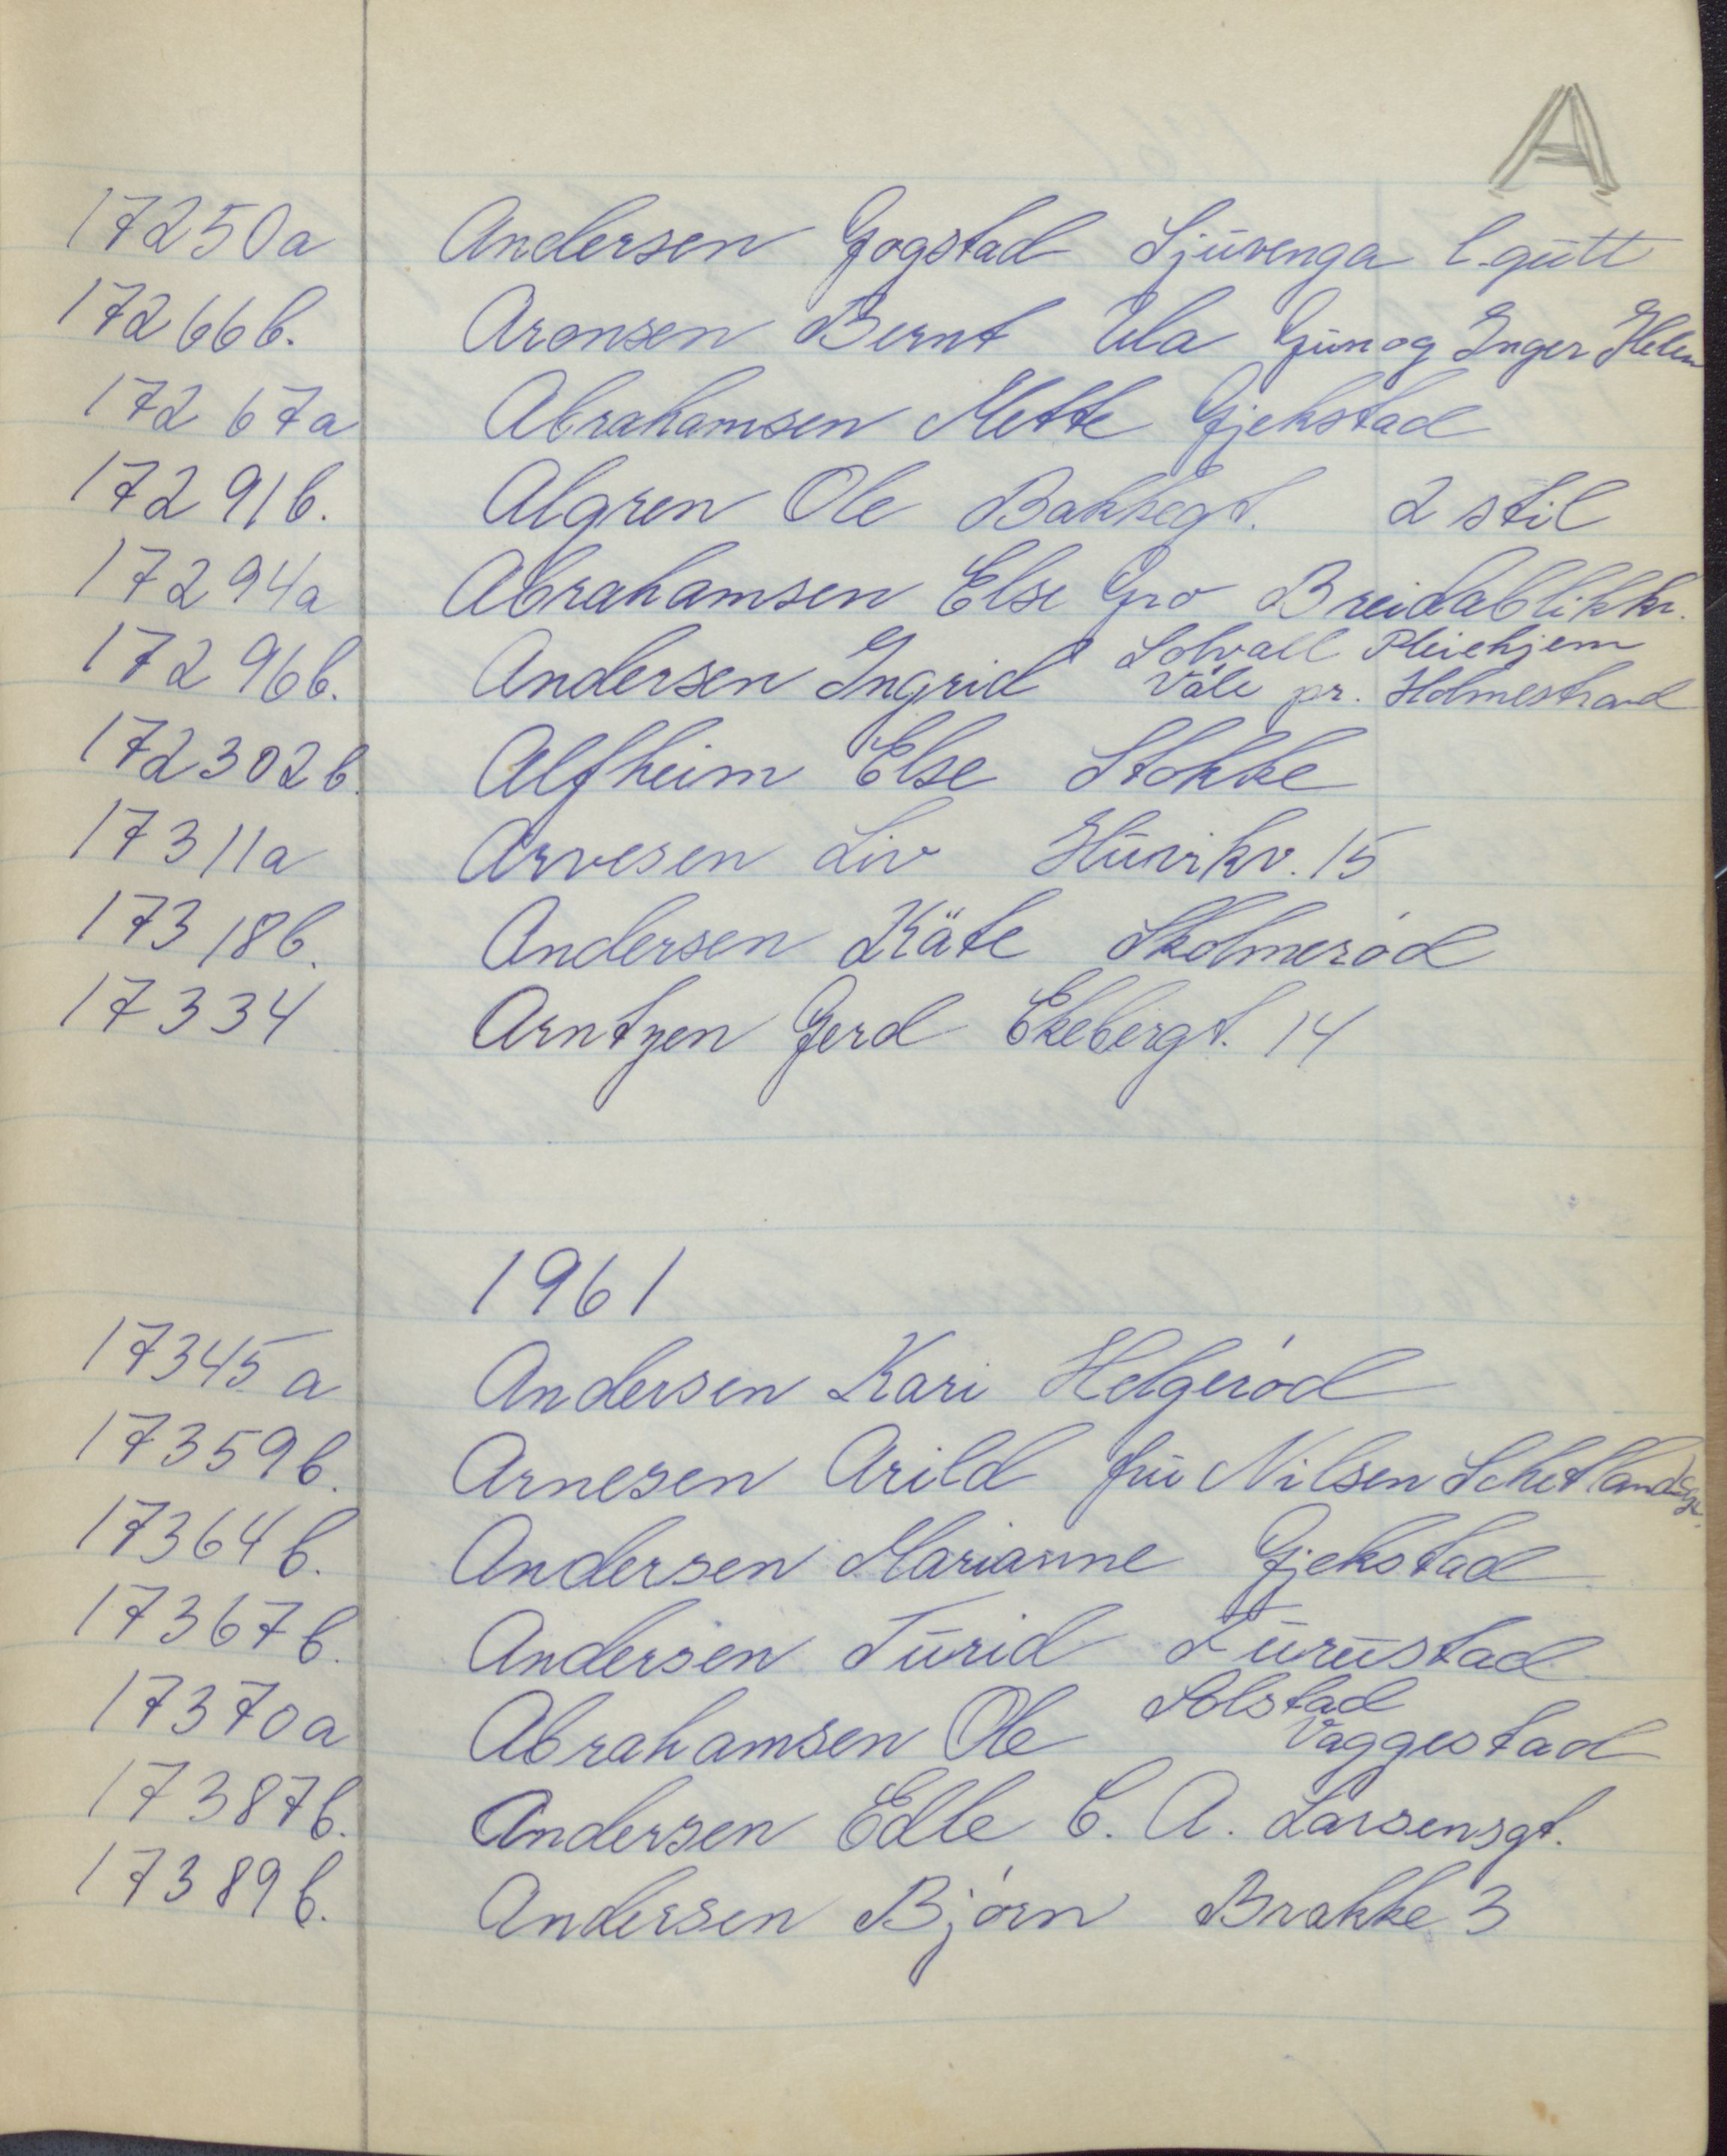 A
17250a Andersen Gogstad Sjuvenga l.gutt
17266b. Aronsen Bernt Ula Gun og Inger Helen
17267a Abrahamsen Mette Gjekstad
17291b. Algren Ole Bakkegt. 2 stil
17294a Abrahamsen Else Gro Breidablikkv.
17296b. Andersen Ingrid Solvall Pleiehjem
Våle pr. Holmestrand
172302b. Alfheim Else Stokke
17311a Arvesen Liv Hunikv. 15
17318b. Andersen Käte Skolmerød
17334 Arntzen Gerd Ekebergt. 14
1961
17345a Andersen Kari Helgerød
17359b. Arnesen Arild fru Nilsen Schetlandsgt.
17364b. Andersen Marianne Gjekstad
17367b. Andersen Turid Furustad
17370a Abrahamsen Ole Solstad
Vaggestad
17387b. Andersen Edle C. A. Larsensgt.
17389b. Andersen Bjørn Brakke 3